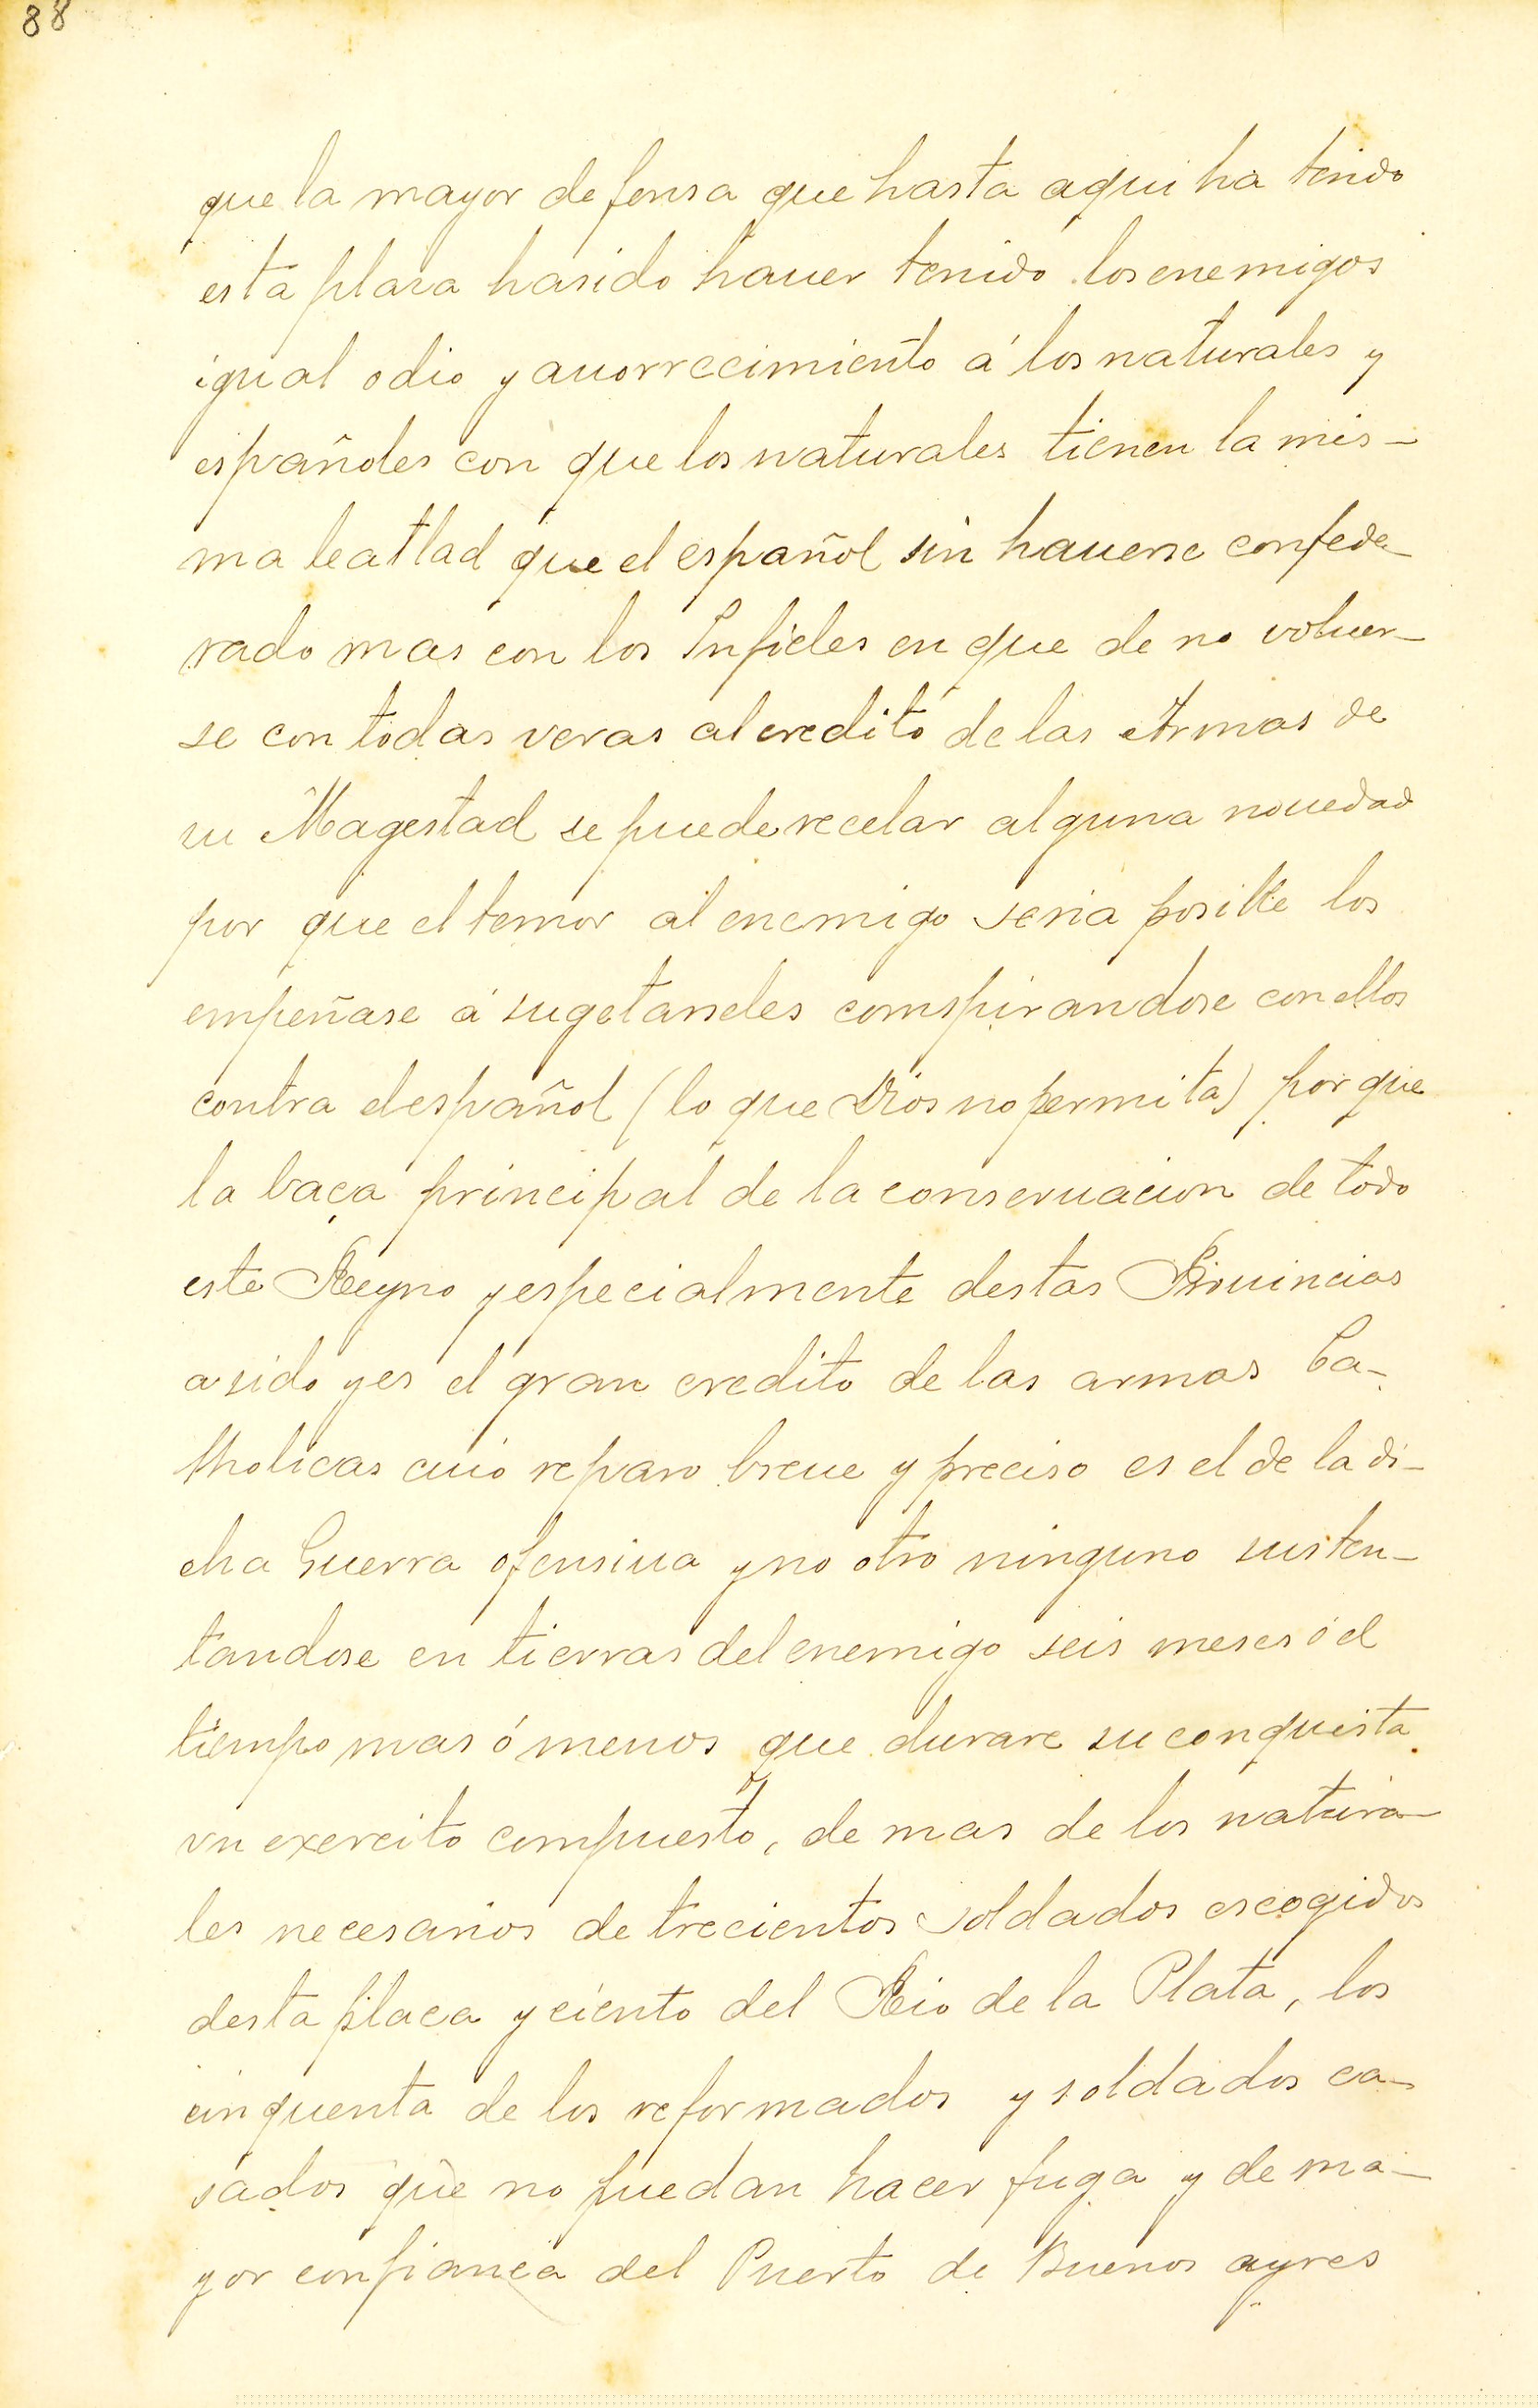 88
que la mayor defensa que hasta aqui ha tenido
esta plaza hasido hauer tenido los enemigos
igual odio y auorrecimiento á los naturales y
españoles con que los naturales tienen la mis-
ma leatlad que el español sin hauerse confede-
rado mas con los Infieles en que de no voluer-
se con todas veras al credito de las Armas de
su Magestad se puede recelar alguna nouedad
por que el temor al enemigo seria posible los
empeñase á sugetarseles comspirandose con ellos
contra el español (lo que Dios no permita) por que
la baça principal de la conseruacion de todo
este Reyno y especialmente destas Prouincias
a sido y es el gran credito de las armas Ca-
tholicas cuio reparo breue y preciso es el de la di-
cha Guerra ofensiua y no otro ninguno susten-
tandose en tierras del enemigo seis meses ó el
tiempo mas ó menos que durare su conquista
vn exercito compuesto, de mas de los natura-
les necesarios de trecientos soldados escogidos
desta placa y ciento del Rio de la Plata, los
cinquenta de los reformados y soldados ca-
sados que no puedan hacer fuga y de ma-
yor confianca del Puerto de Buenos ayres